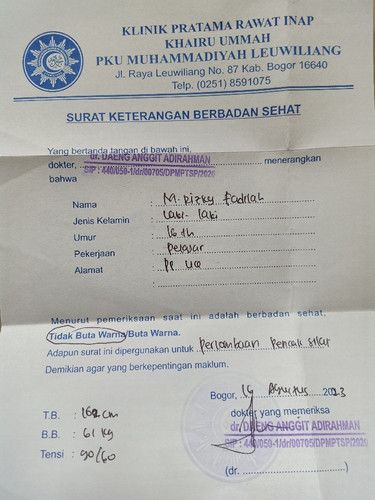 KLINIK PRATAMA RAWAT INAP
KHAIRU UMMAH
PKU MUHAMMADIYAH LEUWILIANG
Jl. Raya Leuwiliang No. 87 Kab. Bogor 16640
Telp. (0251) 8591075
SURAT KETERANGAN BERBADAN SEHAT
Yang bertanda tangan di bawah ini,
dokter, dr. DAENG ANGGIT ADIRAHMAN menerangkan
SIP : 440/050-1/dr/00705/DPMPTSP/2020
bahwa
Nama : M. Rizky Fadilah
Jenis Kelamin : Laki-laki
Umur : 16 th
Pekerjaan : Pelajar
Alamat : PP
Menurut pemeriksaan saat ini adalah berbadan sehat,
Tidak Buta Warna/Buta Warna.
Adapun surat ini dipergunakan untuk Perlombaan Pencak Silat
Demikian agar yang berkepentingan maklum.
Bogor, Agustus 2023
T.B. : 162 cm
dokter yang memeriksa
B.B. : 61 kg
dr. DAENG ANGGIT ADIRAHMAN
SIP : 440/050-1/dr/00705/DPMPTSP/2020
Tensi : 90/60
(dr. )